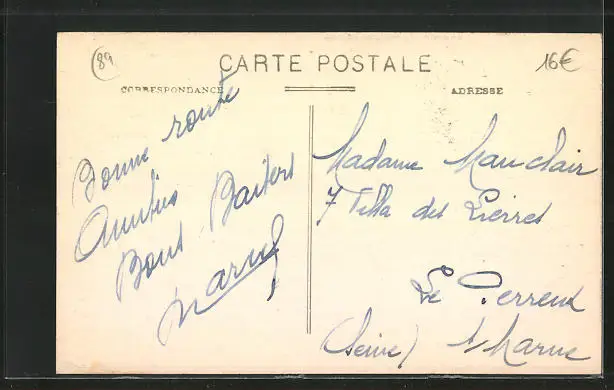 89
16€
CARTE POSTALE
CORRESPONDANCE
ADRESSE
Bonne route
Amitiés
Bons Baisers
Marcel
Madame Mauclair
7 Villa des Lierres
Le Perreux
(Seine) s/ Marne